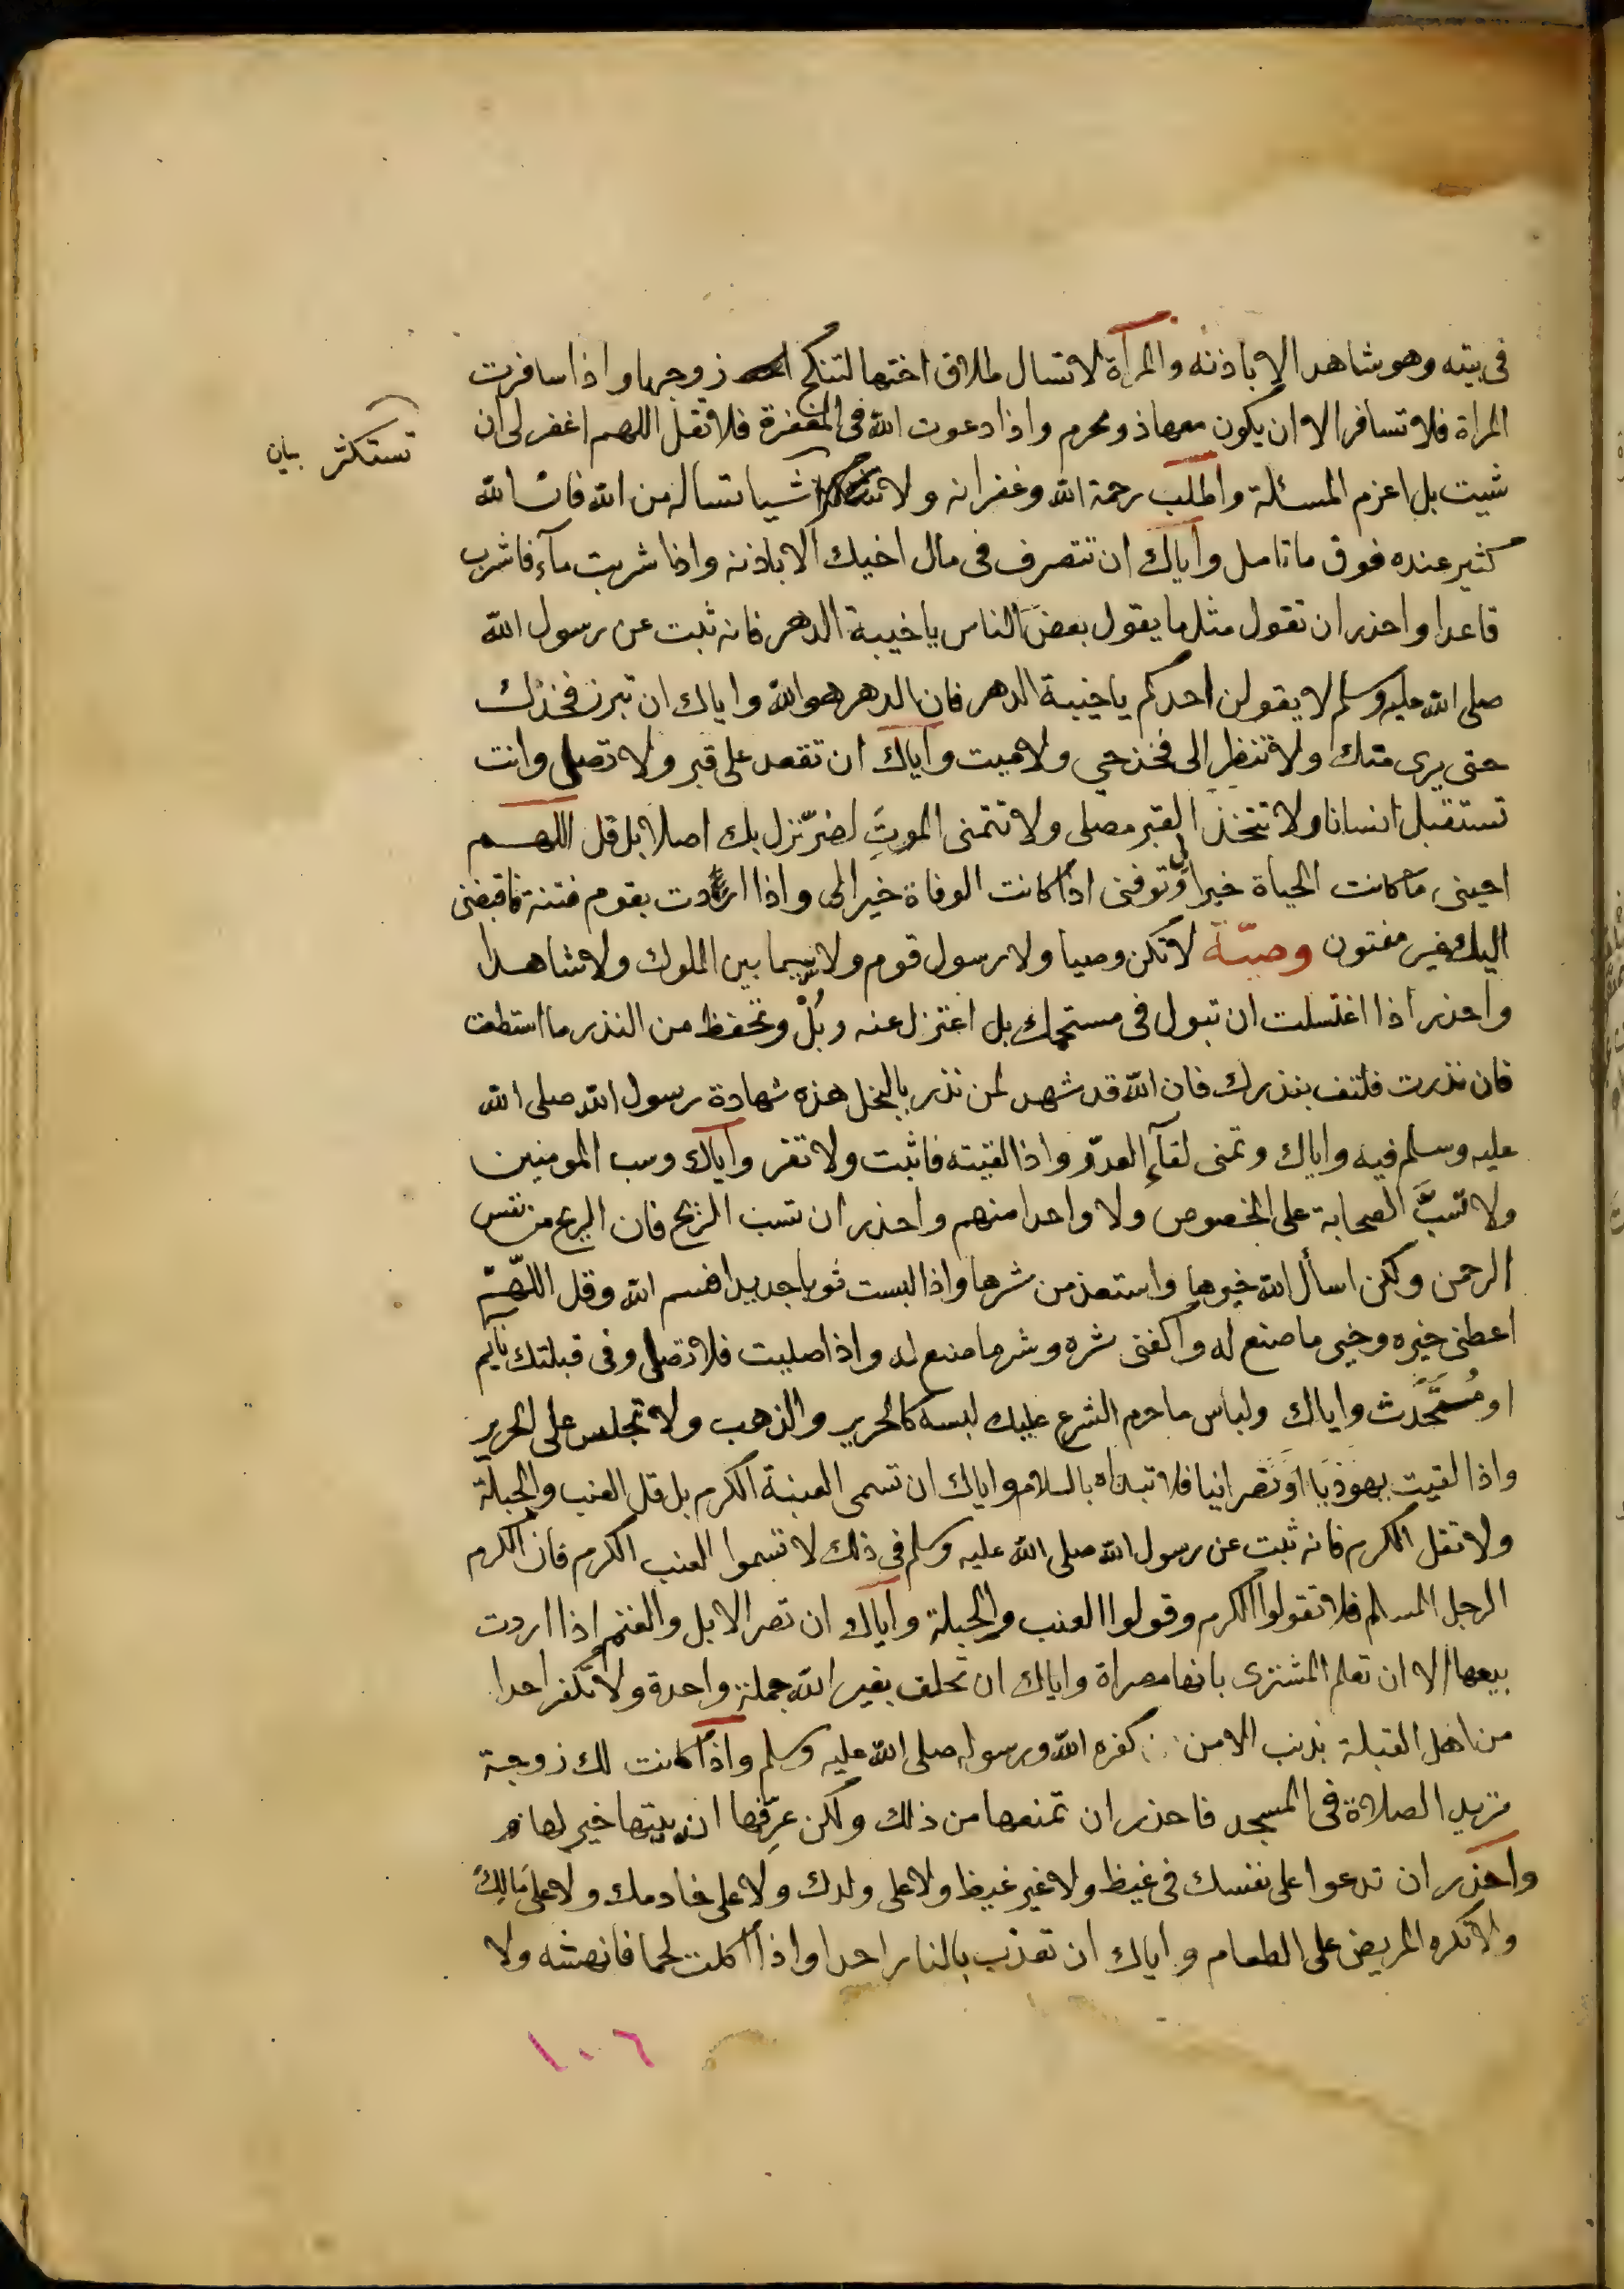 في بيته وهو شاهد الا باذنه والمرأة لا تسال طلاق اختها لتنكح زوجها واذا سافرت
المراة فلا تسافر الا ان يكون معها ذو محرم واذا دعوت الله في المغفرة فلا تقل اللهم اغفر لي ان
تستكثر بيان
شيت بل اعزم المسئلة واطلب رحمة الله وغفرانه ولا شيا تساله من الله فان الله
كثير عنده فوق ما تامل واياك ان تتصرف في مال اخيك الا باذنه واذا شربت مآء فاشرب
قاعدا واحذر ان تقول مثل ما يقول بعض الناس يا خيبة الدهر فانه ثبت عن رسول الله
صلى الله عليه وسلم لا يقولن احدكم يا خيبة الدهر فان الدهر هو الله واياك ان تبرز فخذك
حتى يرى منك ولا تنظر الى فخذ حي ولا ميت واياك ان تقعد على قبر ولا تصلى وانت
تستقبل انسانا ولا تتخذ القبر مصلى ولا تتمنى الموتَ لضرّ نزل بك اصلا بل قل اللهم
احينى ما كانت الحياة خيرا لى وتوفنى اذا كانت الوفاة خيرا لى واذا اردت بقوم فتنة فاقبضنى
اليك غير مفتون وصيّة لا تكن وصيا ولا رسول قوم ولا سيما بين الملوك ولا شاهدا
واحذر اذا اغتسلت ان تبول في مستحمك بل اعتزل عنه وبُلْ وتحفظ من النذر ما استطعت
فان نذرت فلتف بنذرك فان الله قد شهد لمن نذر بالبخل هذه شهادة رسول الله صلى الله
عليه وسلم فيه واياك وتمنى لقآءِ العدّو واذا لقيته فاثبت ولا تفر واياك وسب المومنين
ولا تسبَّ الصحابة على الخصوص ولا واحدا منهم واحذر ان تسب الريح فان الريح من نفس
الرحمن ولكن اسأل الله خيرها واستعذ من شرها واذا لبست ثوبا جديدا فسم الله وقل اللّهمّ
اعطنى خيره وخير ما صنع له واكفنى شره وشر ما صنع له واذا صليت فلا تصلى وفى قبلتك نايم
او مُتَحَدِّث واياك ولباس ما حرم الشرع عليك لبسه كالحرير والذهب ولا تجلس على الحرير
واذا لقيت يهوديا او نصرانيا فلا تبداه بالسلام واياك ان تسمى العنبة الكرم بل قل العنب والحبلة
ولا تقل الكرم فانه ثبت عن رسول الله صلى الله عليه وسلم فى ذلك لا تسموا العنب الكرم فان الكرم
الرجل المسلم فلا تقولوا الكرم وقولوا العنب والحبلة واياك ان تصر الابل والغنم اذا اردت
بيعها الا ان تعلم المشترى بانها مصراة واياك ان تحلف بغير الله جملة واحدة ولا تكفر احدا
من اهل القبلة بذنب الا من كفره الله ورسوله صلى الله عليه وسلم واذا كانت لك زوجة
تريد الصلاة فى المسجد فاحذر ان تمنعها من ذلك ولكن عرّفها ان بيتها خير لها
واحذر ان تدعوا على نفسك فى غيظ ولا غير غيظ ولا على ولدك ولا على خادمك ولا على مَالِكَ
ولا تكره المريض على الطعام واياك ان تعذب بالنار احدا واذا اكلت لحما فانهشه ولا
١٠٦